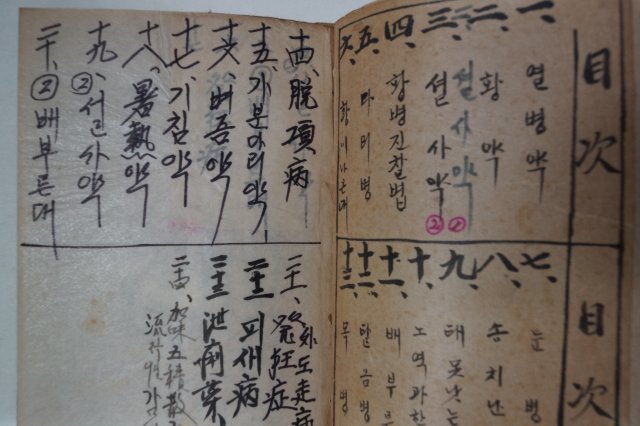 目次
一、열병약
二、황약
三、설사약 ①
설사약 ②
四、황병진찰법
五、다리병
六、황이나은대
目次
七、눈병
八、송치난
九、태못낫는
十、노역과한
十一、배부른
十二、탈금병
十三、목병
十四、脫項病
十五、가분다리약
十六、버즘약
十七、기침약
十八、暑熱약
十九、설사약 ②
二十、② 배부른대
二十一、
發狂症
二十二、피새病
二十三、泄痢藥
二十四、加味五積散